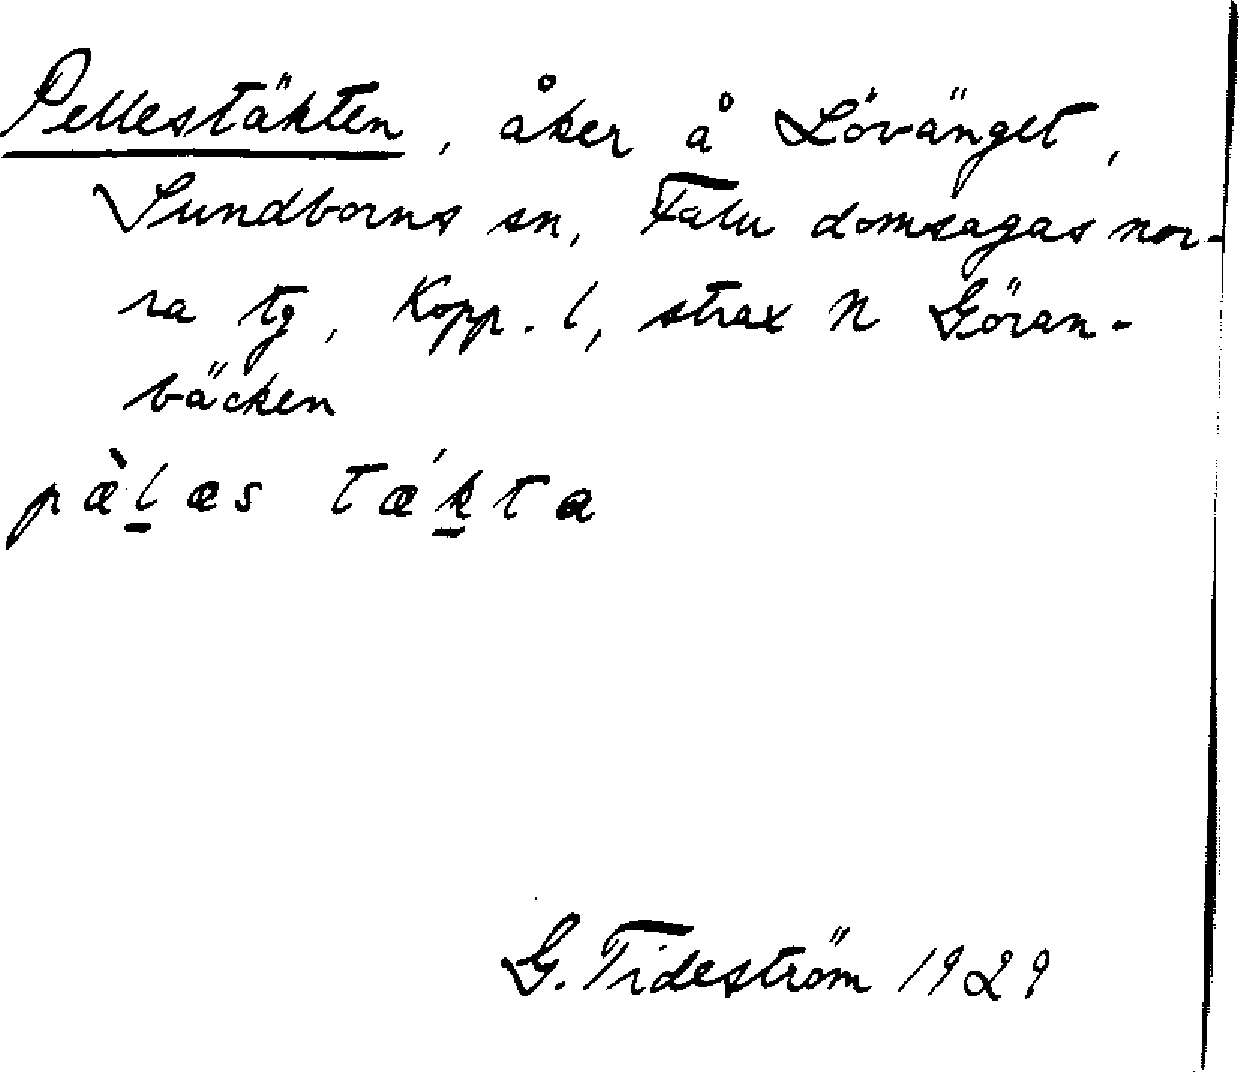 Pellestäkten, åker å Lövänget,
Sundborns sn, Falu domsagas nor-
ra tg, Kopp. l, strax N Göran-
bäcken
pæ̀l̲æs tǽk̲ta
G. Tideström 1929